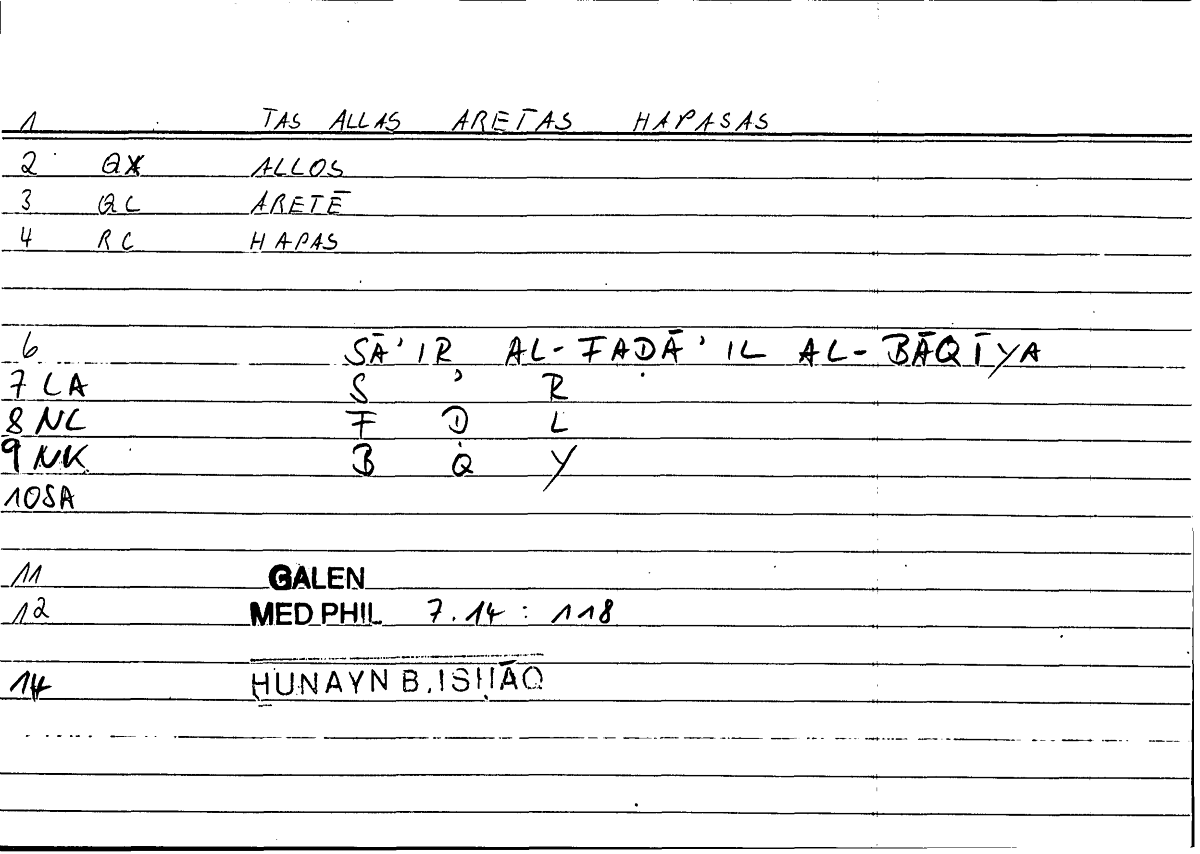 1 TAS ALLAS ARETAS HAPASAS
2 QX ALLOS
3 QC ARETĒ
4 RC HAPAS
6 SĀ'IR AL-FAḌĀ'IL AL-BĀQĪYA
7 LA S ' R
8 NL F Ḍ L
9 NK B Q Y
10 SA
11 GALEN
12 MED PHIL 7.14 : 118
14 ḤUNAYN B. ISḤĀQ